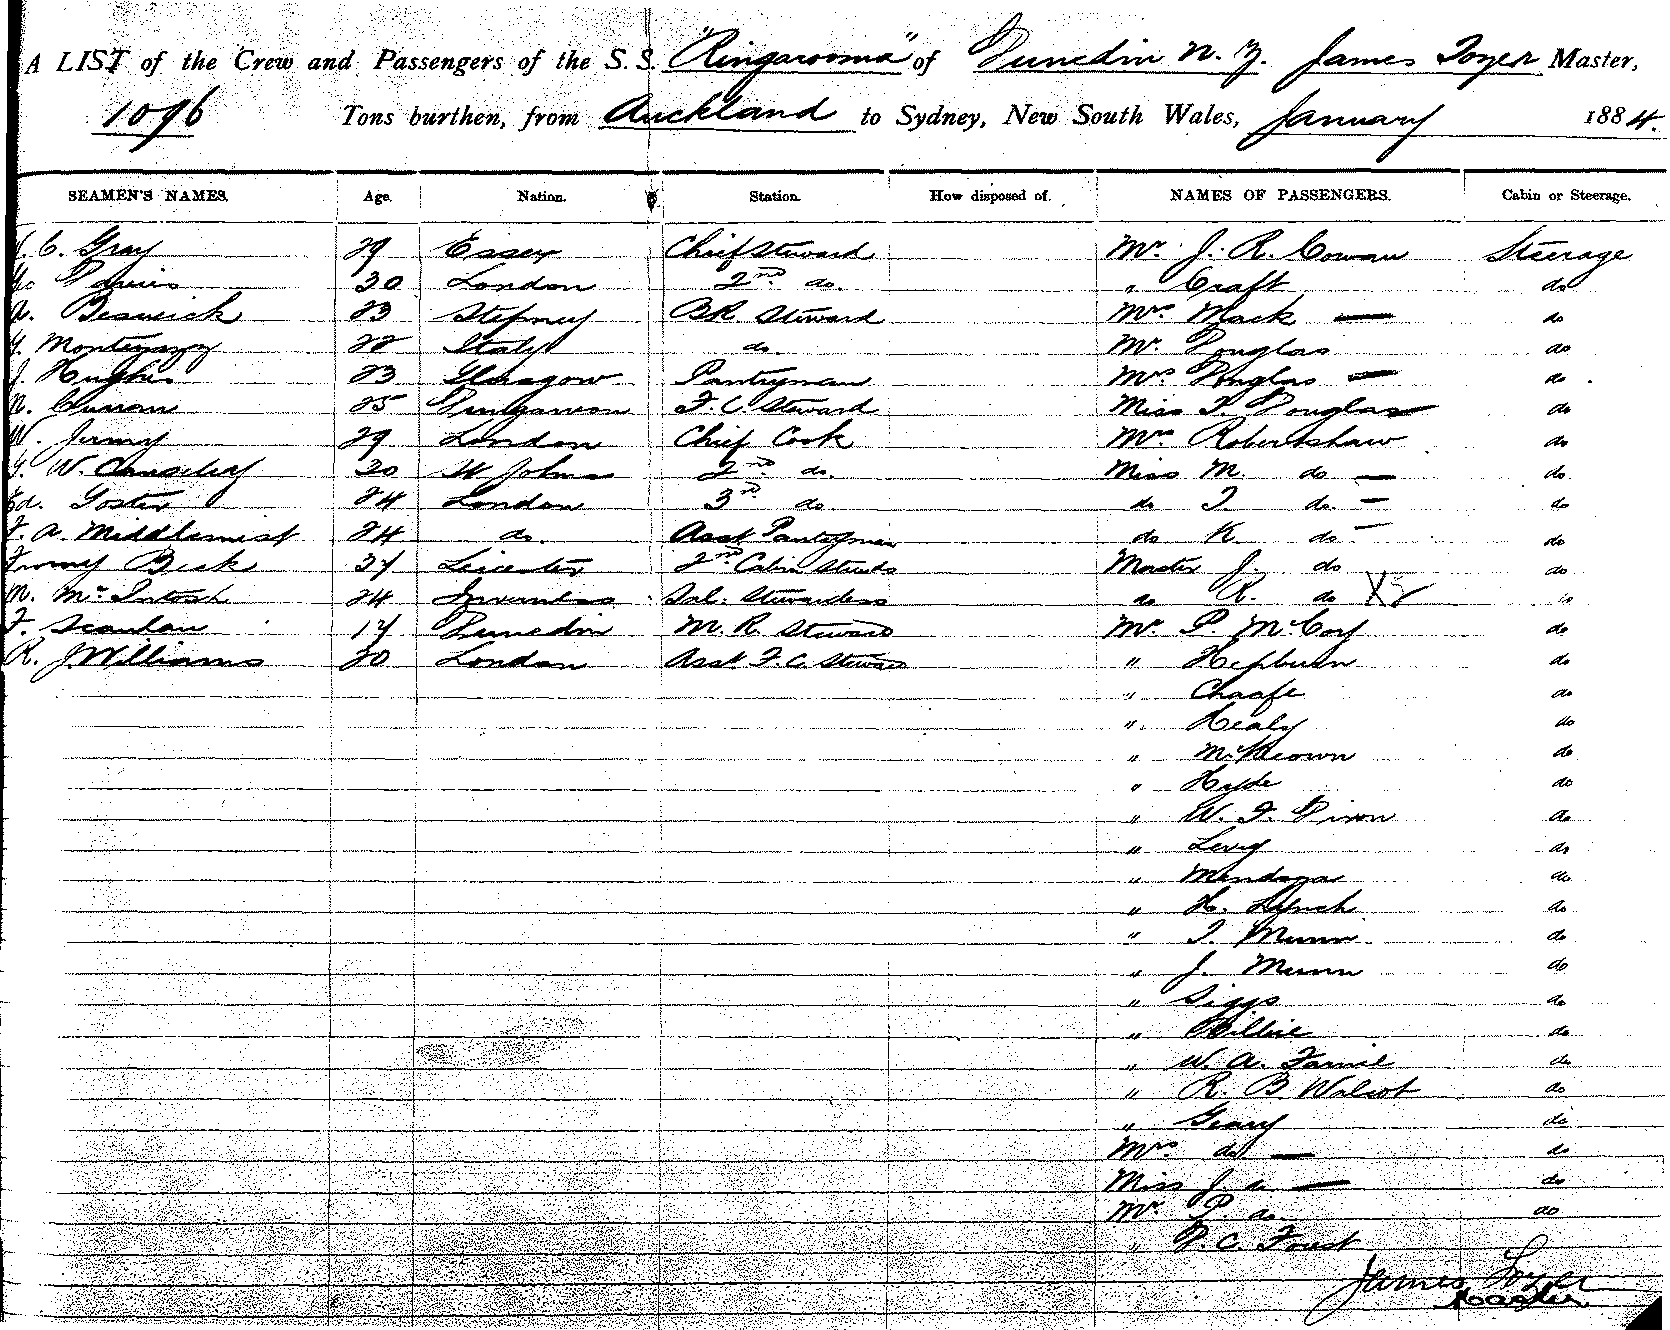 A LIST of the Crew and Passengers of the S.S. "Ringarooma" of Dunedin N. Z. James Tozer Master,
1096 Tons burthen, from Auckland to Sydney, New South Wales, January 1884.
SEAMEN'S NAMES. Age. Nation. Station. How disposed of. NAMES OF PASSENGERS. Cabin or Steerage.
C. Gray 29 Essex Chief Steward Mr. J. R. Cowan Steerage
30 London 2nd do. " Craft do
Beswick 23 Stepney B.R. Steward Mrs Mack — do
Italy do. Mr. Douglas do
J. Hughes 23 Glasgow Pantryman Mrs Douglas — do
N. Curran 25 Dungannon F. C. Steward Miss Douglas do
W. 29 London Chief Cook Mrs Robertshaw do
W. St Johns 2nd do. Miss M. do — do
Ed. Foster 24 London 3rd do. do do. — do
F. A. Middlemist 24 do. Asst Pantryman do K. do — do
Beck Leicester 2nd Cabin Steward Master J. do do
McIntosh 24 Inverness Sal. Stewardess do R. do
F. Scanlan 17 Dunedin M. R. Steward Mr. P. McCoy do
R. J Williams 20 London Asst F. C. Steward " Hepburn do
" Chaafe do
" Healy do
" McKeown do
" Hyde do
" W. F. Dixon do
" Levy do
" Mendoza do
" H. Lynch do
" Munn do
" J. Munn do
" Siggs do
" do
" W. A. do
" R. B Walcot do
" Geary do
Mrs do — do
Miss J. — do
Mr. P. do. do
" C. Foust
James Tozer
Master